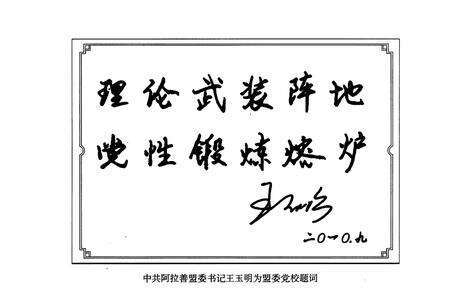 理论武装阵地
党性锻炼熔炉
二〇一〇.九
中共阿拉善盟委书记王玉明为盟委党校题词